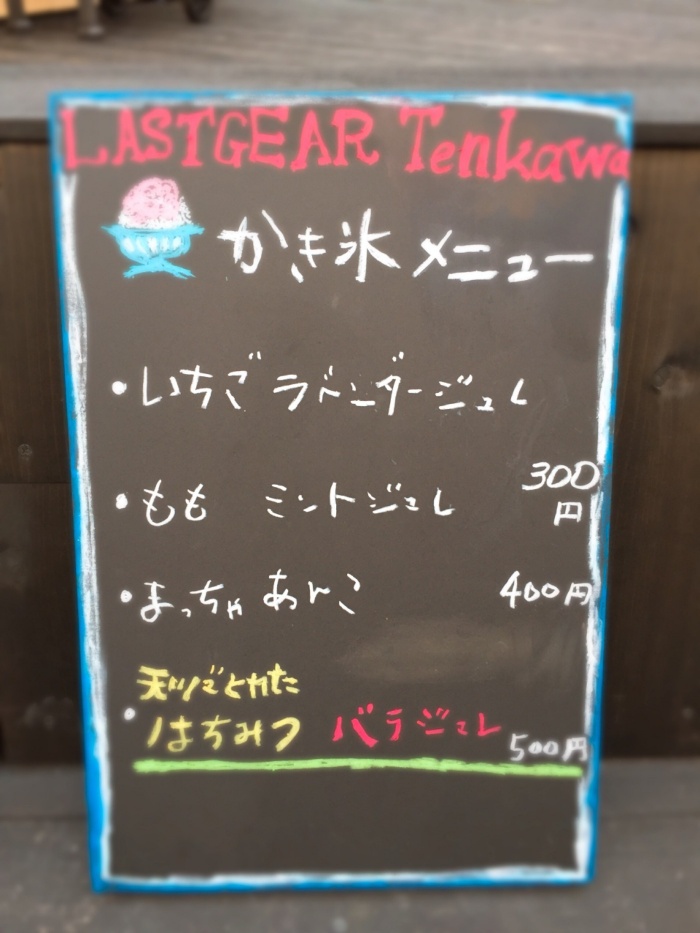 LASTGEAR Tenkawa
かき氷 メニュー
・いちご ラベンダージュレ
・もも ミントジュレ 300
円
・まっちゃ あんこ 400円
天川でとれた
・はちみつ バラジュレ 500円